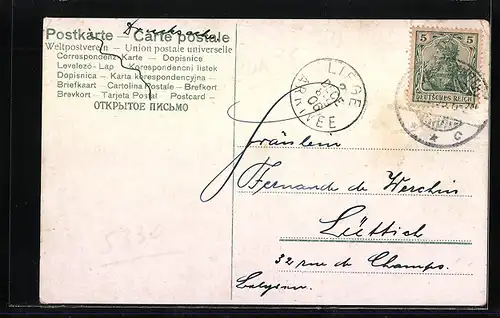 Drucksache
Postkarte Carte postale
Weltpostverein – Union postale universelle
Correspondenz Karte – Dopisnice
Levelező-Lap – Korespondencni listek
Dopisnica – Karta korespondencyjna –
Briefkaart – Cartolina Postale – Brefkort
Brevkort – Tarjeta Postal – Postcard –
ОТКРЫТОЕ ПИСЬМО
LIÉGE
ARRIVÉE
5 5
DEUTSCHES REICH
* * C
Fräulein
Fernande de Werchin
Lüttich
32 rue de Champs.
Belgien.
5330